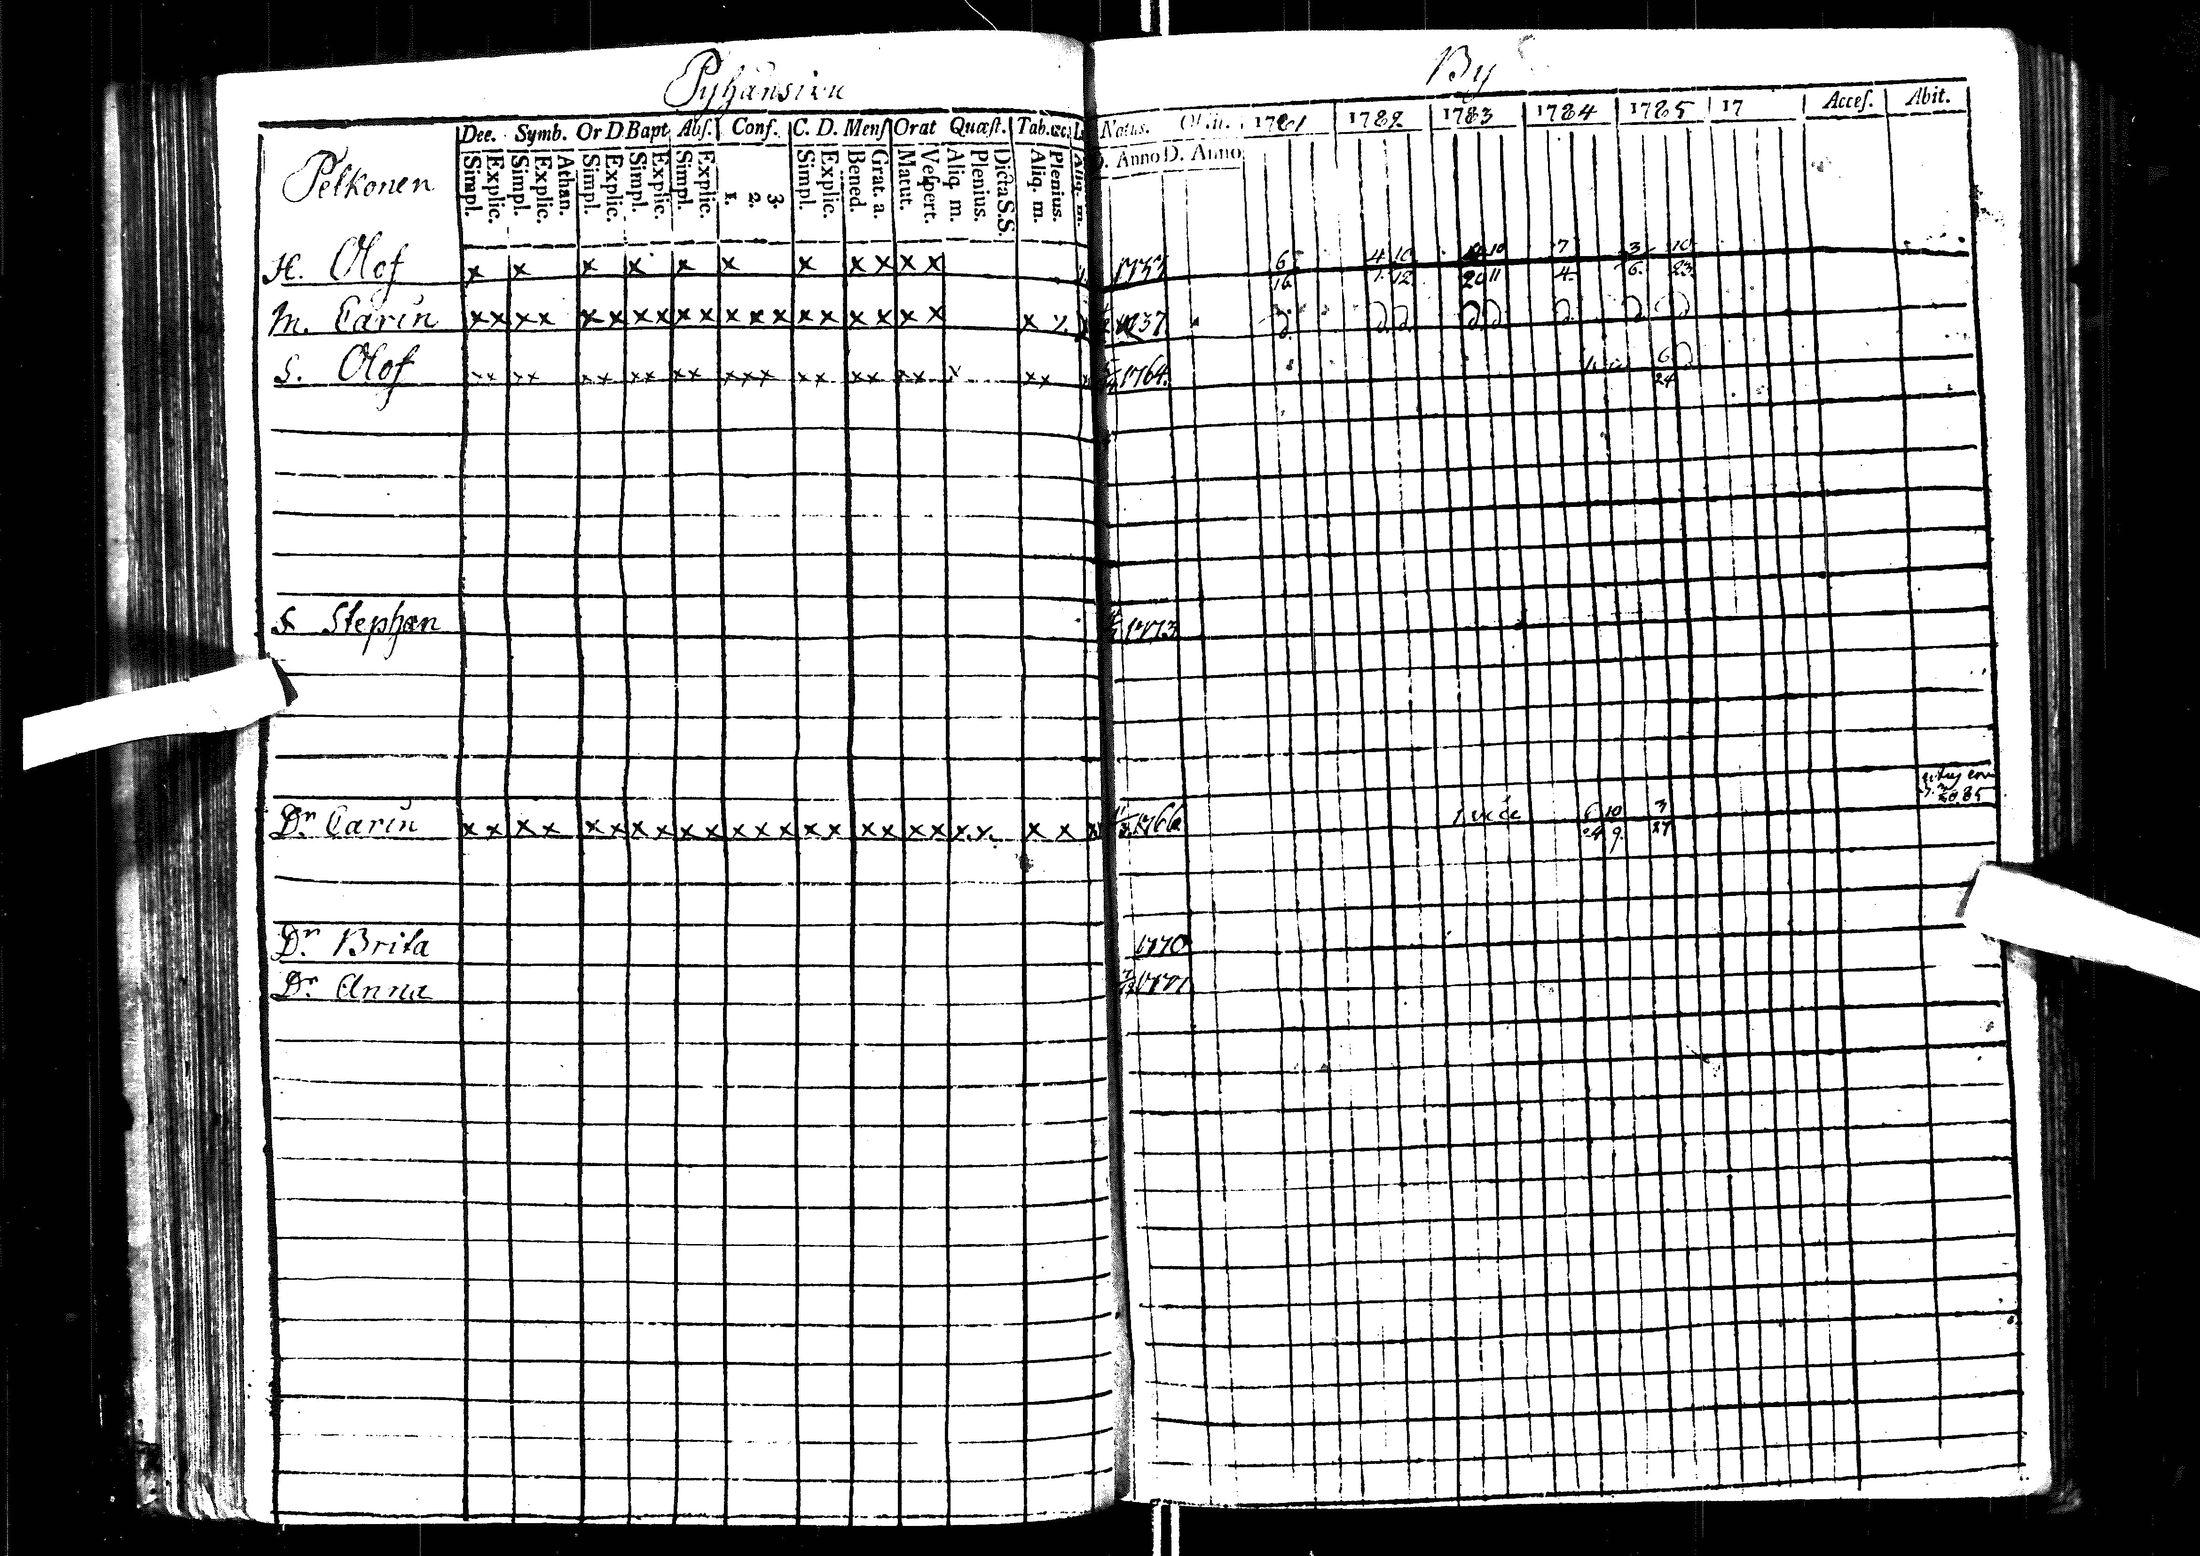 Pyhänsivu By
Dec. Symb. Or D Bapt Abs. Conf. C. D. Mens Orat Quæst. Tab. Natus. Obiit. 1781 1782 1783 1784 1785 17 Acces. Abit.
Pelkonen Simpl. Explic. Simpl. Explic. Athan. Simpl. Explic. Simpl. Explic. Simpl. Explic. 1. 2. 3. Simpl. Explic. Bened. Grat. a. Matut. Vespert. Aliq. m. Plenius. Dicta S.S. Aliq. m. Plenius. Aliq. m. D. Anno D. Anno
H. Olof x x x x x x x x x x x 6/16 4/1 10/12 10/11 7/4 3/6 10/23
M. Carin x x x x x x x x x x x x x x x x x x x x x 1737
S. Olof x x x x x x x x x x x x x x x x x x x x x x x 1764. 6/24
S Stephan 1773
Dr Carin x x x x x x x x x x x x x x x x x x x x x x x x 1766 1 vice 6/24 10/9 3/27
Dr Brita 1770
Dr Anna 1771